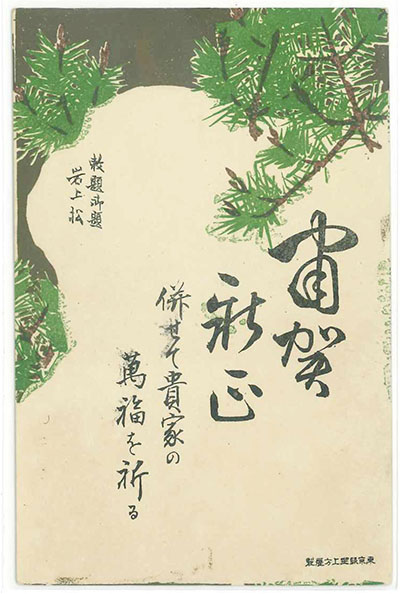 肅賀
新正
併せて貴家の
萬福を祈る
敕題御題
岩上松
東京銀座上方屋製